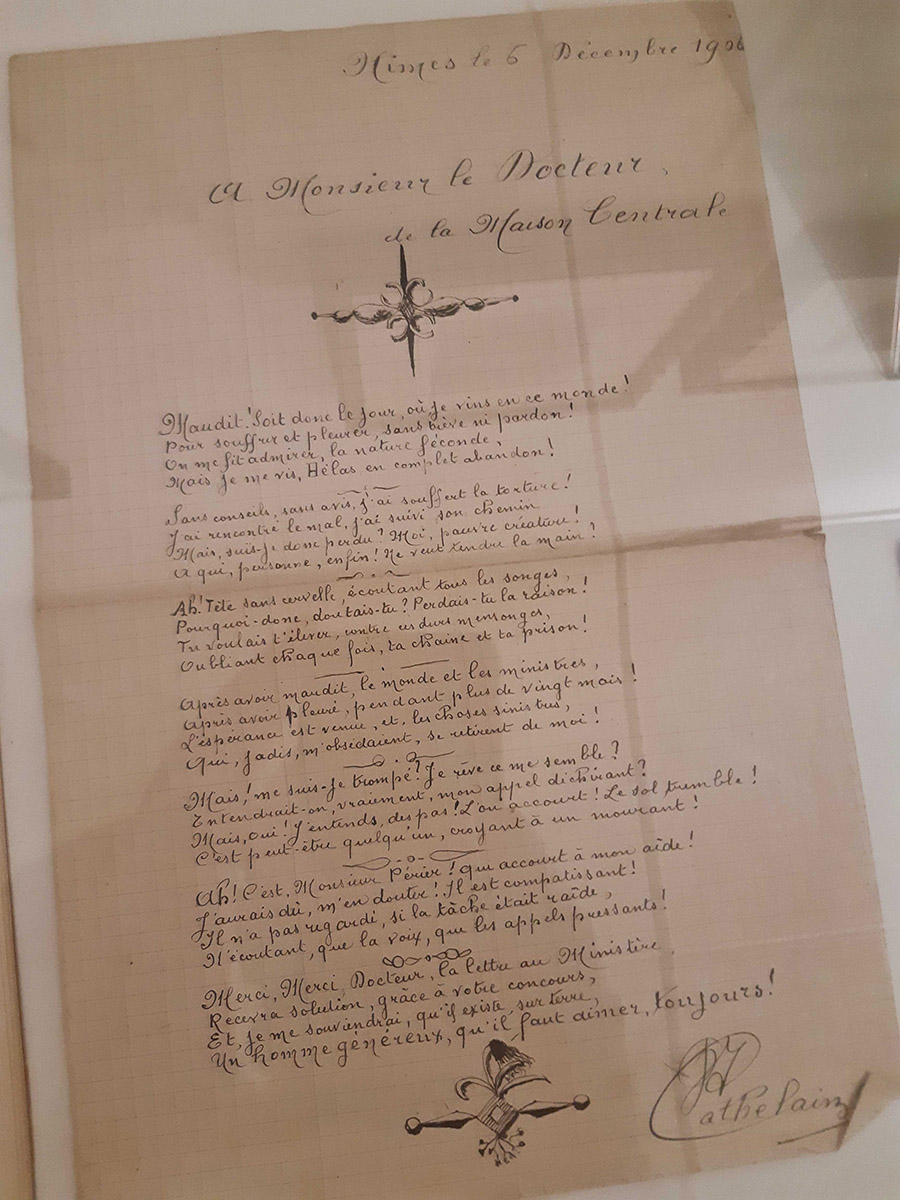 Nimes le 6 Décembre 1906
A Monsieur le Docteur,
de la Maison Centrale
Maudit! Soit donc le jour, où je vins en ce monde!
Pour souffrir et pleurer, sans trève ni pardon!
On me fit admirer, la nature féconde,
Mais je me vis, Hélas en complet abandon!
Sans conseils, sans avis, j'ai souffert la torture!
J'ai rencontré le mal, j'ai suivi son chemin
Mais, suis-je donc perdu? Moi, pauvre créature!
A qui, personne, enfin! Ne veut tendre la main?
Ah! Tête sans cervelle, écoutant tous les songes,
Pourquoi-donc, doutais-tu? Perdais-tu la raison!
Tu voulais t'élever, contre ces durs mensonges,
Oubliant chaque fois, ta chaine et ta prison!
Après avoir maudit, le monde et les ministres,
Après avoir pleuré, pendant plus de vingt mois!
L'espérance est venue, et, les choses sinistres,
Qui, Jadis, m'obsédaient, se retirent de moi!
Mais! me suis-je trompé? Je rêve ce me semble?
Entendrait-on, vraiment, mon appel déchirant?
Mais, oui! J'entends, des pas! L'on accourt! Le sol tremble!
C'est peut-être quelqu'un, croyant à un mourant!
Ah! C'est, Monsieur Périer! qui accourt à mon aide!
J'aurais dû, m'en douter! Il est compatissant!
Il n'a pas regardé, si la tâche était raide,
N'écoutant, que la voix, que les appels pressants!
Merci, Merci, Docteur, la lettre au Ministère
Recevra solution, grâce à votre concours,
Et, je me souviendrai, qu'il existe sur terre,
Un homme généreux, qu'il faut aimer, toujours!
Cathelain